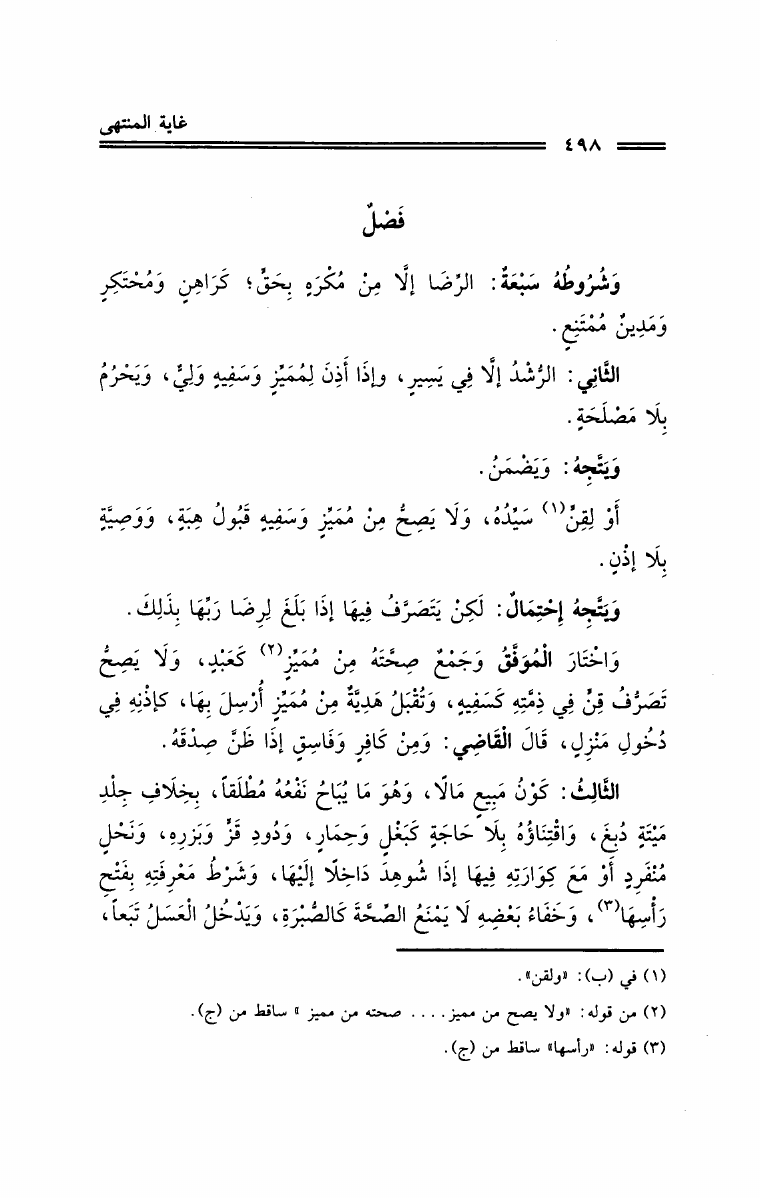 غاية المنتهى
٤٩٨
فَصْلٌ
وَشُرُوطُهُ سَبْعَةٌ: الرِّضَا إلَّا مِنْ مُكْرَهٍ بِحَقٍّ؛ كَرَاهِنٍ وَمُحْتَكِرٍ
وَمَدِينٌ مُمْتَنِعٍ.
الثَّانِي: الرُّشْدُ إلَّا فِي يَسِيرٍ، وإذَا أَذِنَ لِمُمَيِّزٍ وَسَفِيهٍ وَلِيٌّ، وَيَحْرُمُ
بِلَا مَصْلَحَةٍ.
وَيَتَّجِهُ: وَيَضْمَنُ.
أَوْ لِقِنٍّ(١) سَيِّدُهُ، وَلَا يَصِحُّ مِنْ مُمَيِّزٍ وَسَفِيهٍ قَبُولُ هِبَةٍ، وَوَصِيَّةٍ
بِلَا إذْنٍ.
وَيَتَّجِهُ إحْتِمَالٌ: لَكِنْ يَتَصَرَّفُ فِيهَا إذَا بَلَغَ لِرِضَا رَبِّهَا بِذَلِكَ.
وَاخْتَارَ الْمُوَفَّقُ وَجَمْعٌ صِحَّتَهُ مِنْ مُمَيِّزٍ(٢) كَعَبْدٍ، وَلَا يَصِحُّ
تَصَرُّفُ قِنٍّ فِي ذِمَّتِهِ كَسَفِيهٍ، وَتُقْبَلُ هَدِيَّةٌ مِنْ مُمَيِّزٍ أُرْسِلَ بِهَا، كإذْنِهِ فِي
دُخُولِ مَنْزِلٍ، قَالَ الْقَاضِي: وَمِنْ كَافِرٍ وَفَاسِقٍ إذَا ظَنَّ صِدْقَهُ.
الثَّالِثُ: كَوْنُ مَبِيعٍ مَالًا، وَهُوَ مَا يُبَاحُ نَفْعُهُ مُطْلَقاً، بِخِلَافِ جِلْدِ
مَيْتَةٍ دُبِغَ، وَاقْتِنَاؤُهُ بِلَا حَاجَةٍ كَبَغْلٍ وَحِمَارٍ، وَدُودِ قَزٍّ وَبَزرِهِ، وَنَحْلٍ
مُنْفَرِدٍ أَوْ مَعَ كِوَارَتِهِ فِيهَا إذَا شُوهِدَ دَاخِلًا إلَيْهَا، وَشَرْطُ مَعْرِفَتِهِ بِفَتْحِ
رَأْسِهَا(٣)، وَخَفَاءُ بَعْضِهِ لَا يَمْنَعُ الصِّحَّةَ كَالصُّبْرَةِ، وَيَدْخُلُ الْعَسَلُ تَبَعاً،
(١) في (ب): «ولقن».
(٢) من قوله: «ولا يصح من مميز.... صحته من مميز» ساقط من (ج).
(٣) قوله: «رأسها» ساقط من (ج).